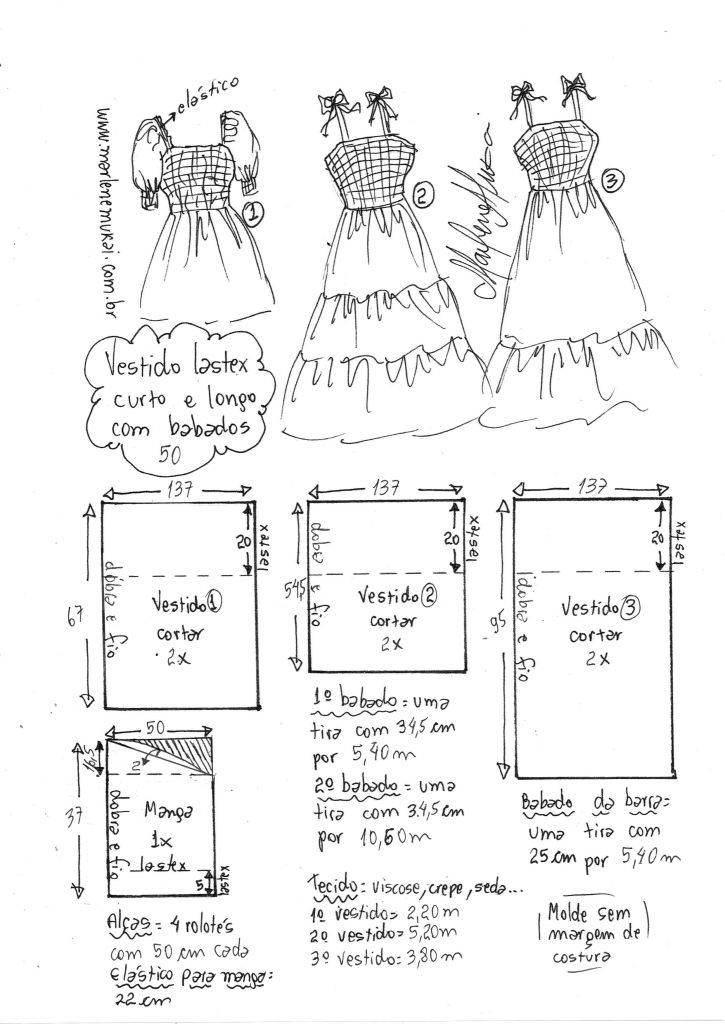 elástico
www.marlenemukai.com.br
1
2
3
Marlene Mukai
Vestido lastex
curto e longo
com babados
50
137
20
lastex
67
dobra e fio
Vestido 1
cortar
2x
137
20
lastex
54,5
dobra e fio
Vestido 2
cortar
2x
137
20
lastex
95
dobra e fio
Vestido 3
cortar
2x
50
2
37
dobra e fio
Manga
1x
lastex
5
lastex
Alças = 4 rolotês
com 50 cm cada
Elástico para manga:
22 cm
1º babado = uma
tira com 34,5 cm
por 5,40 m
2º babado = uma
tira com 34,5 cm
por 10,50 m
Tecido: viscose, crepe, seda...
1º vestido = 2,20 m
2º vestido = 5,20 m
3º vestido = 3,80 m
Babado da barra =
uma tira com
25 cm por 5,40 m
Molde sem
margem de
costura